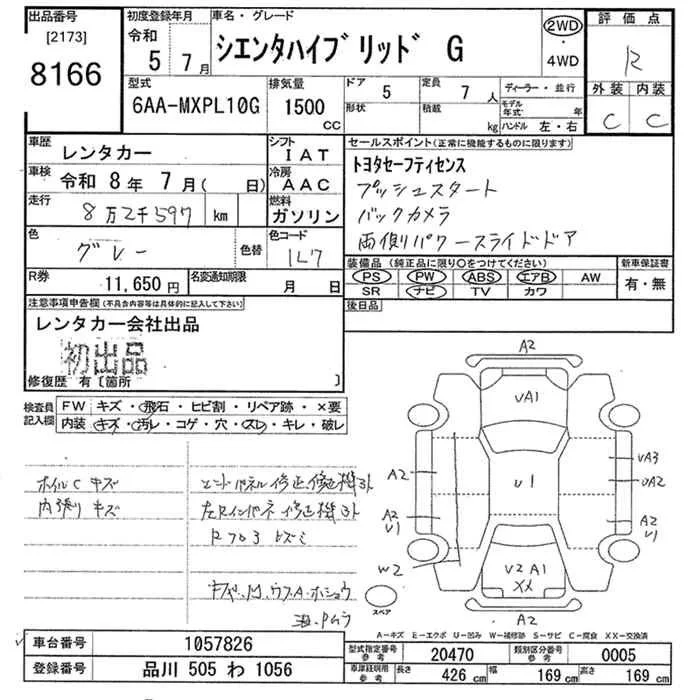 出品番号
[2173]
8166
初度登録年月
令和
5 7月
車名・グレード
シエンタハイブリッド G
2WD
・
4WD
評価点
R
外装 内装
C C
型式
6AA-MXPL10G
排気量
1500
CC
ドア 5
形状
定員 7 人
積載 kg
ディーラー・並行
モデル年式 年
ハンドル 左・右
車歴
レンタカー
シフト
IAT
車検 令和 8年 7月( 日)
冷房
AAC
走行
8万2千597 km
燃料
ガソリン
色
グレー
色替
色コード
1L7
R券
11,650円
名変通知期限
月 日
セールスポイント(正常に機能するものに限ります)
トヨタセーフティセンス
プッシュスタート
バックカメラ
両側パワースライドドア
装備品(純正品に限り〇をつけてください)
PS PW ABS エアB AW
SR ナビ TV カワ
新車保証書
有・無
後日品
注意事項申告欄(不具合内容等は具体的に記入して下さい)
レンタカー会社出品
初出品
修復歴 有〔箇所 〕
検査員
記入欄
FW キズ・飛石・ヒビ割・リペア跡・×要
内装 キズ・汚レ・コゲ・穴・スレ・キレ・破レ
ホイルC キズ
内張り キズ
修正 修正機ヨト
修正機ヨト
A2
UA1
U1
A2
UA3
UA2
A2
U1
A2
U1
W2
U2 A1
XX
A2
スペア
A-キズ E-エクボ U-凹み W-補修跡 S-サビ C-腐食 XX-交換済
車台番号 1057826
登録番号 品川 505 わ 1056
型式指定番号
参考
20470
類別区分番号
参考
0005
車庫証明用
参考
長さ 426 cm
幅 169 cm
高さ 169 cm